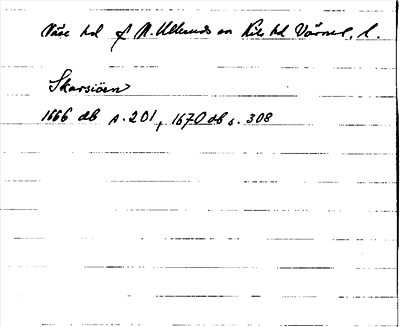 Näse hd f N. Ullerud sn Kils hd Värml. l.
Skarsiöen
1666 db s. 201, 1670 db s. 308